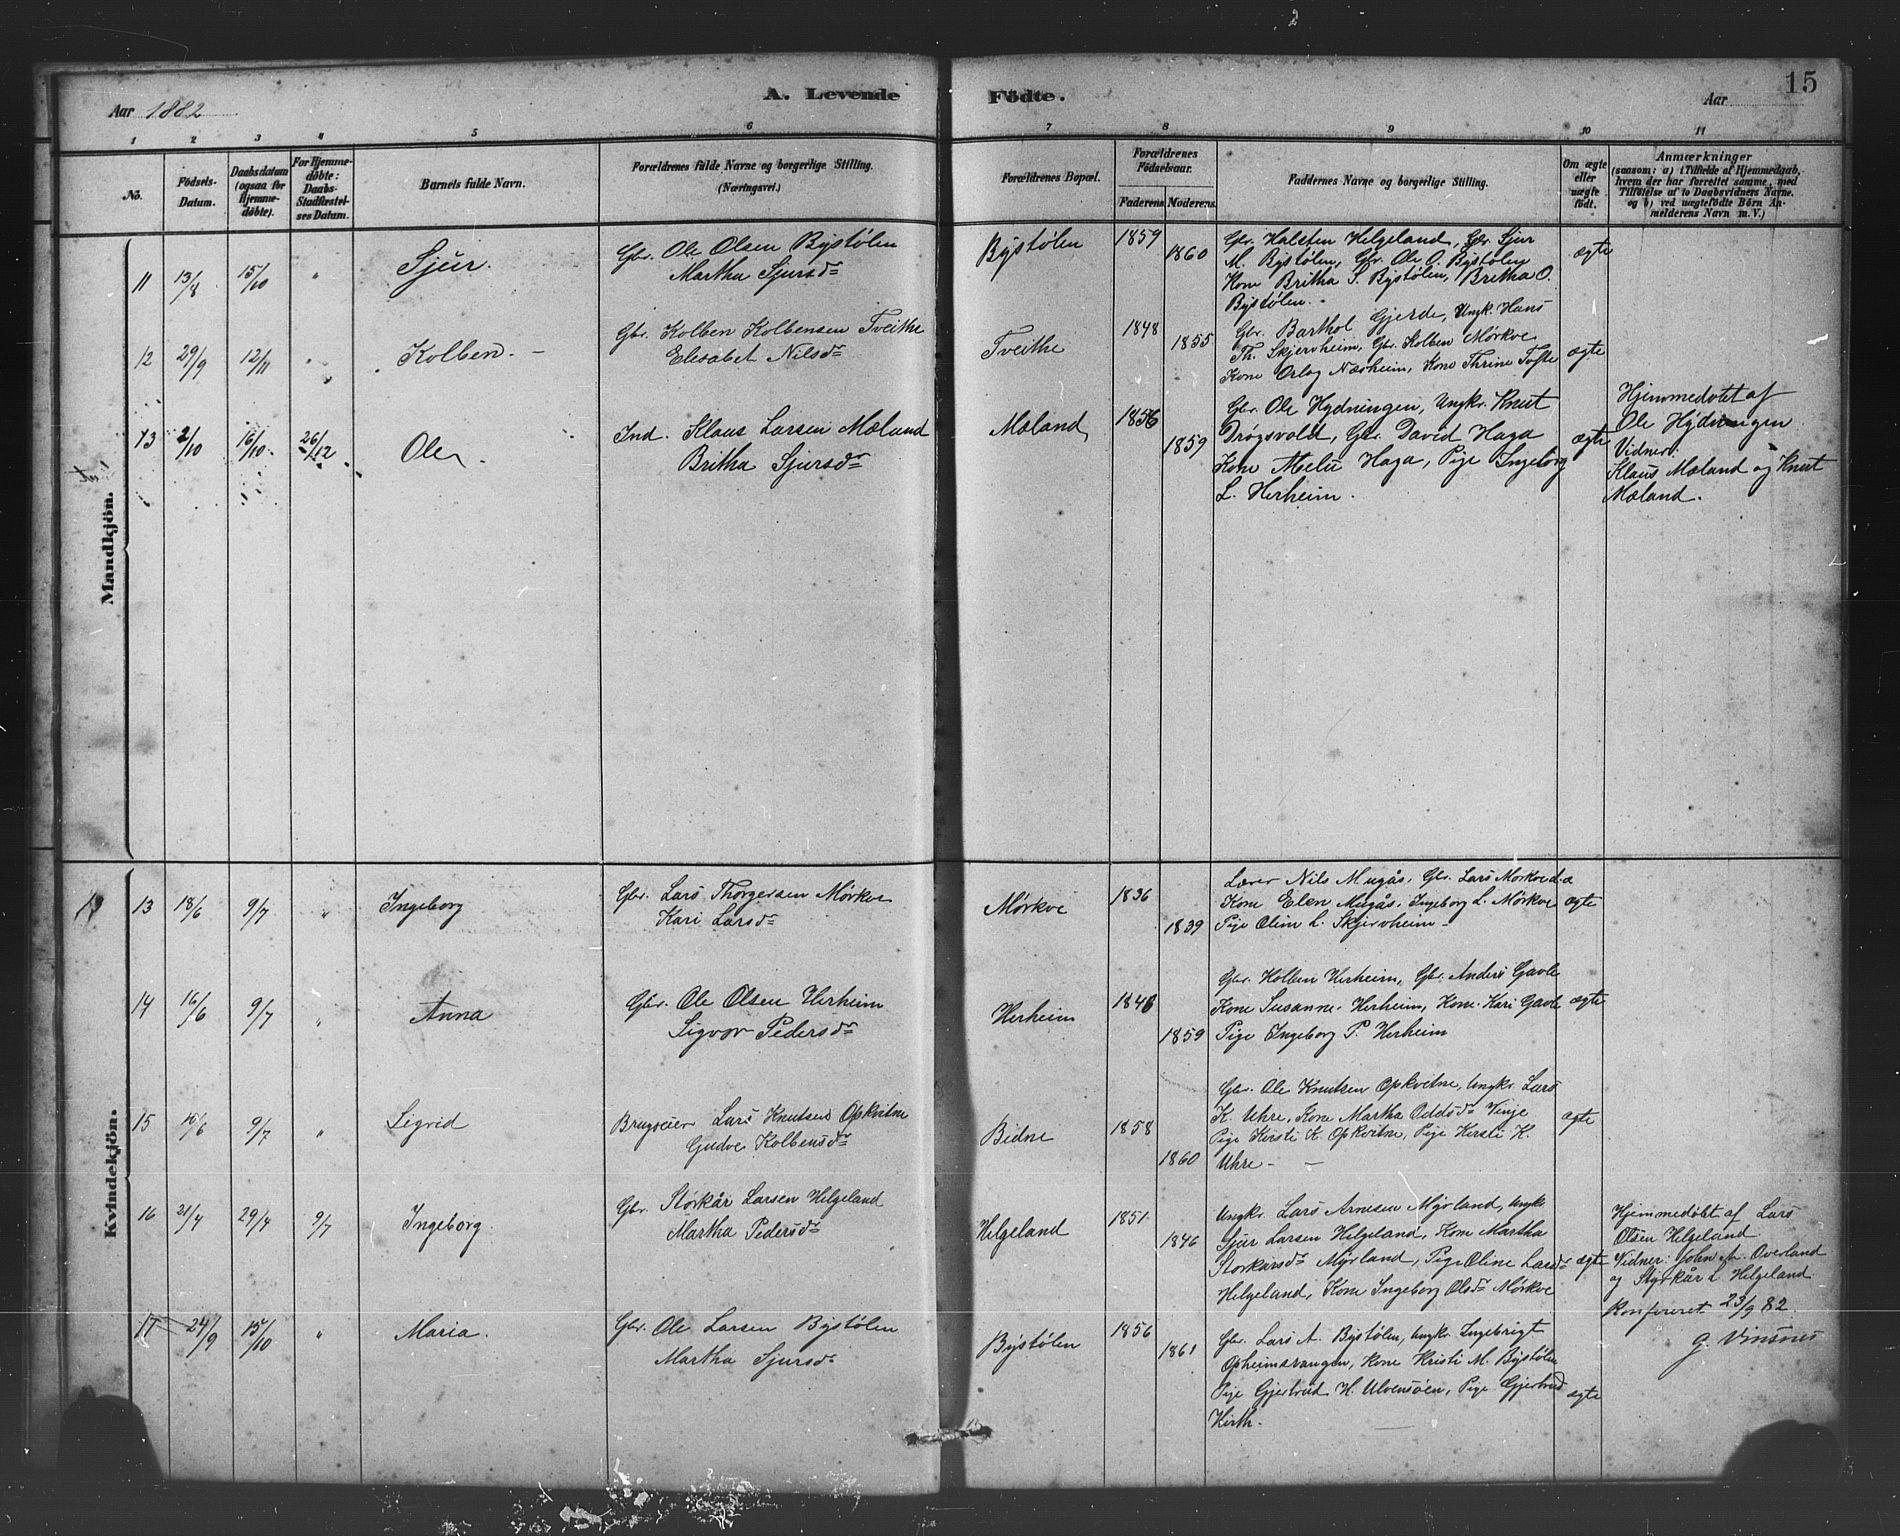 15
Aar 1882
A. Levende
Födte.
Aar
1 2 3 4 5 6 7 8 9 10 11
No.
Födsels-Datum.
Daabsdatum (ogsaa for Hjemme-döbte).
For Hjemme-döbte: Daabs-Stadfæstel-ses Datum.
Barnets fulde Navn.
Forældrenes fulde Navne og borgerlige Stilling.
(Næringsvei.)
Forældrenes Bopæl.
Forældrenes Födselsaar.
Faderens. Moderens.
Faddernes Navne og borgerlige Stilling.
Om ægte eller uægte födt.
Anmærkninger
(saasom: a) i Tilfælde af Hjemmedaab,
hvem der har forrettet samme, med
Tilföielse af to Daabsvidners Navne,
og b) ved uægtefödte Börn An-
melderens Navn m. V.)
Mandkjön.
11 13/8 15/10 " Sjur.
Gbr. Ole Olsen Bystølen
Martha Sjursdr
Bystølen
1859
1860
Gbr. Halsten Helgeland, Gbr. Sjur
M. Bystølen, Gbr. Ole O. Bystølen
Kone Britha S. Bystølen, Britha O.
Bystølen.
ægte
12 29/9 12/11 " Kolben.
Gbr. Kolben Kolbensen Tveithe
Elisabet Nilsdr
Tveithe
1848
1855
Gbr. Barthol Gjerde, Ungk. Hans
Th. Skjervheim, Gbr. Kolben Mørkve
Kone Orlog Næsheim, Kone Thrine Tofte
ægte
13 2/10 16/10 26/12 Ole
Ind. Klaus Larsen Mæland
Britha Sjursdr
Mæland
1856
1859
Gbr. Ole Hydningen, Ungkr. Knut
Drøgsvold, Gbr. David Haga
Kone Haga, Pige Ingeborg
L. Herheim.
ægte
Hjemmedøbt af
Ole Hydningen
Vidner:
Klaus Mæland og Knut
Mæland.
Kvindekjön.
13 18/6 9/7 " Ingeborg
Gbr. Lars Thorgersen Mørkve
Kari Larsdr
Mørkve
1836
1839
Lærer Nils Mugås, Gbr. Lars Mørkve
Kone Elen Mugås, Ingeborg L. Mørkve
Pige Olim L. Skjervheim
ægte
14 16/6 9/7 " Anna
Gbr. Ole Olsen Herheim
Sigvor Pedersdr
Herheim
1846
1859
Gbr. Kolben Herheim, Gbr. Anders Gavle
Kone Susanne Herheim, Kone Kari Gavle
Pige Ingeborg P. Herheim
ægte
15 16/6 9/7 " Sigrid
Brugseier Lars Knutsen Opkvitne
Gudve Kolbensdr
Bidne
1858
1860
Gbr. Ole Knutsen Opkvitne, Ungkr. Lars
K. Uhre, Kone Martha Oddsdr Vinje
Pige Kirsti K. Opkvitne, Pige Kirsti K.
Uhre
ægte
16 21/4 29/4 9/7 Ingeborg.
Gbr. Størkår Larsen Helgeland
Martha Pedersdr
Helgeland
1851
1846
Ungkr. Lars Arnesen Myrland, Ungkr
Sjur Larsen Helgeland, Kone Martha
Størkarsdr Myrland, Pige Oline Larsdr
Helgeland, Kone Ingeborg Olsdr Mørkve
ægte
Hjemmedøbt af Lars
Olsen Helgeland
Vidner: John A. Overland
og Styrkår L. Helgeland
Konfereret 23/9 82
G. Vinsnes
17 24/9 15/10 " Maria.
Gbr. Ole Larsen Bystølen
Martha Sjursdr
Bystølen
1856
1861
Gbr. Lars A. Bystølen, Ungkr Ingebrigt
Opheimsvangen, Kone Kristi M. Bystølen
Pige Gjertrud H. Ulvensøen, Pige Gjertrud
Kirth.
ægte